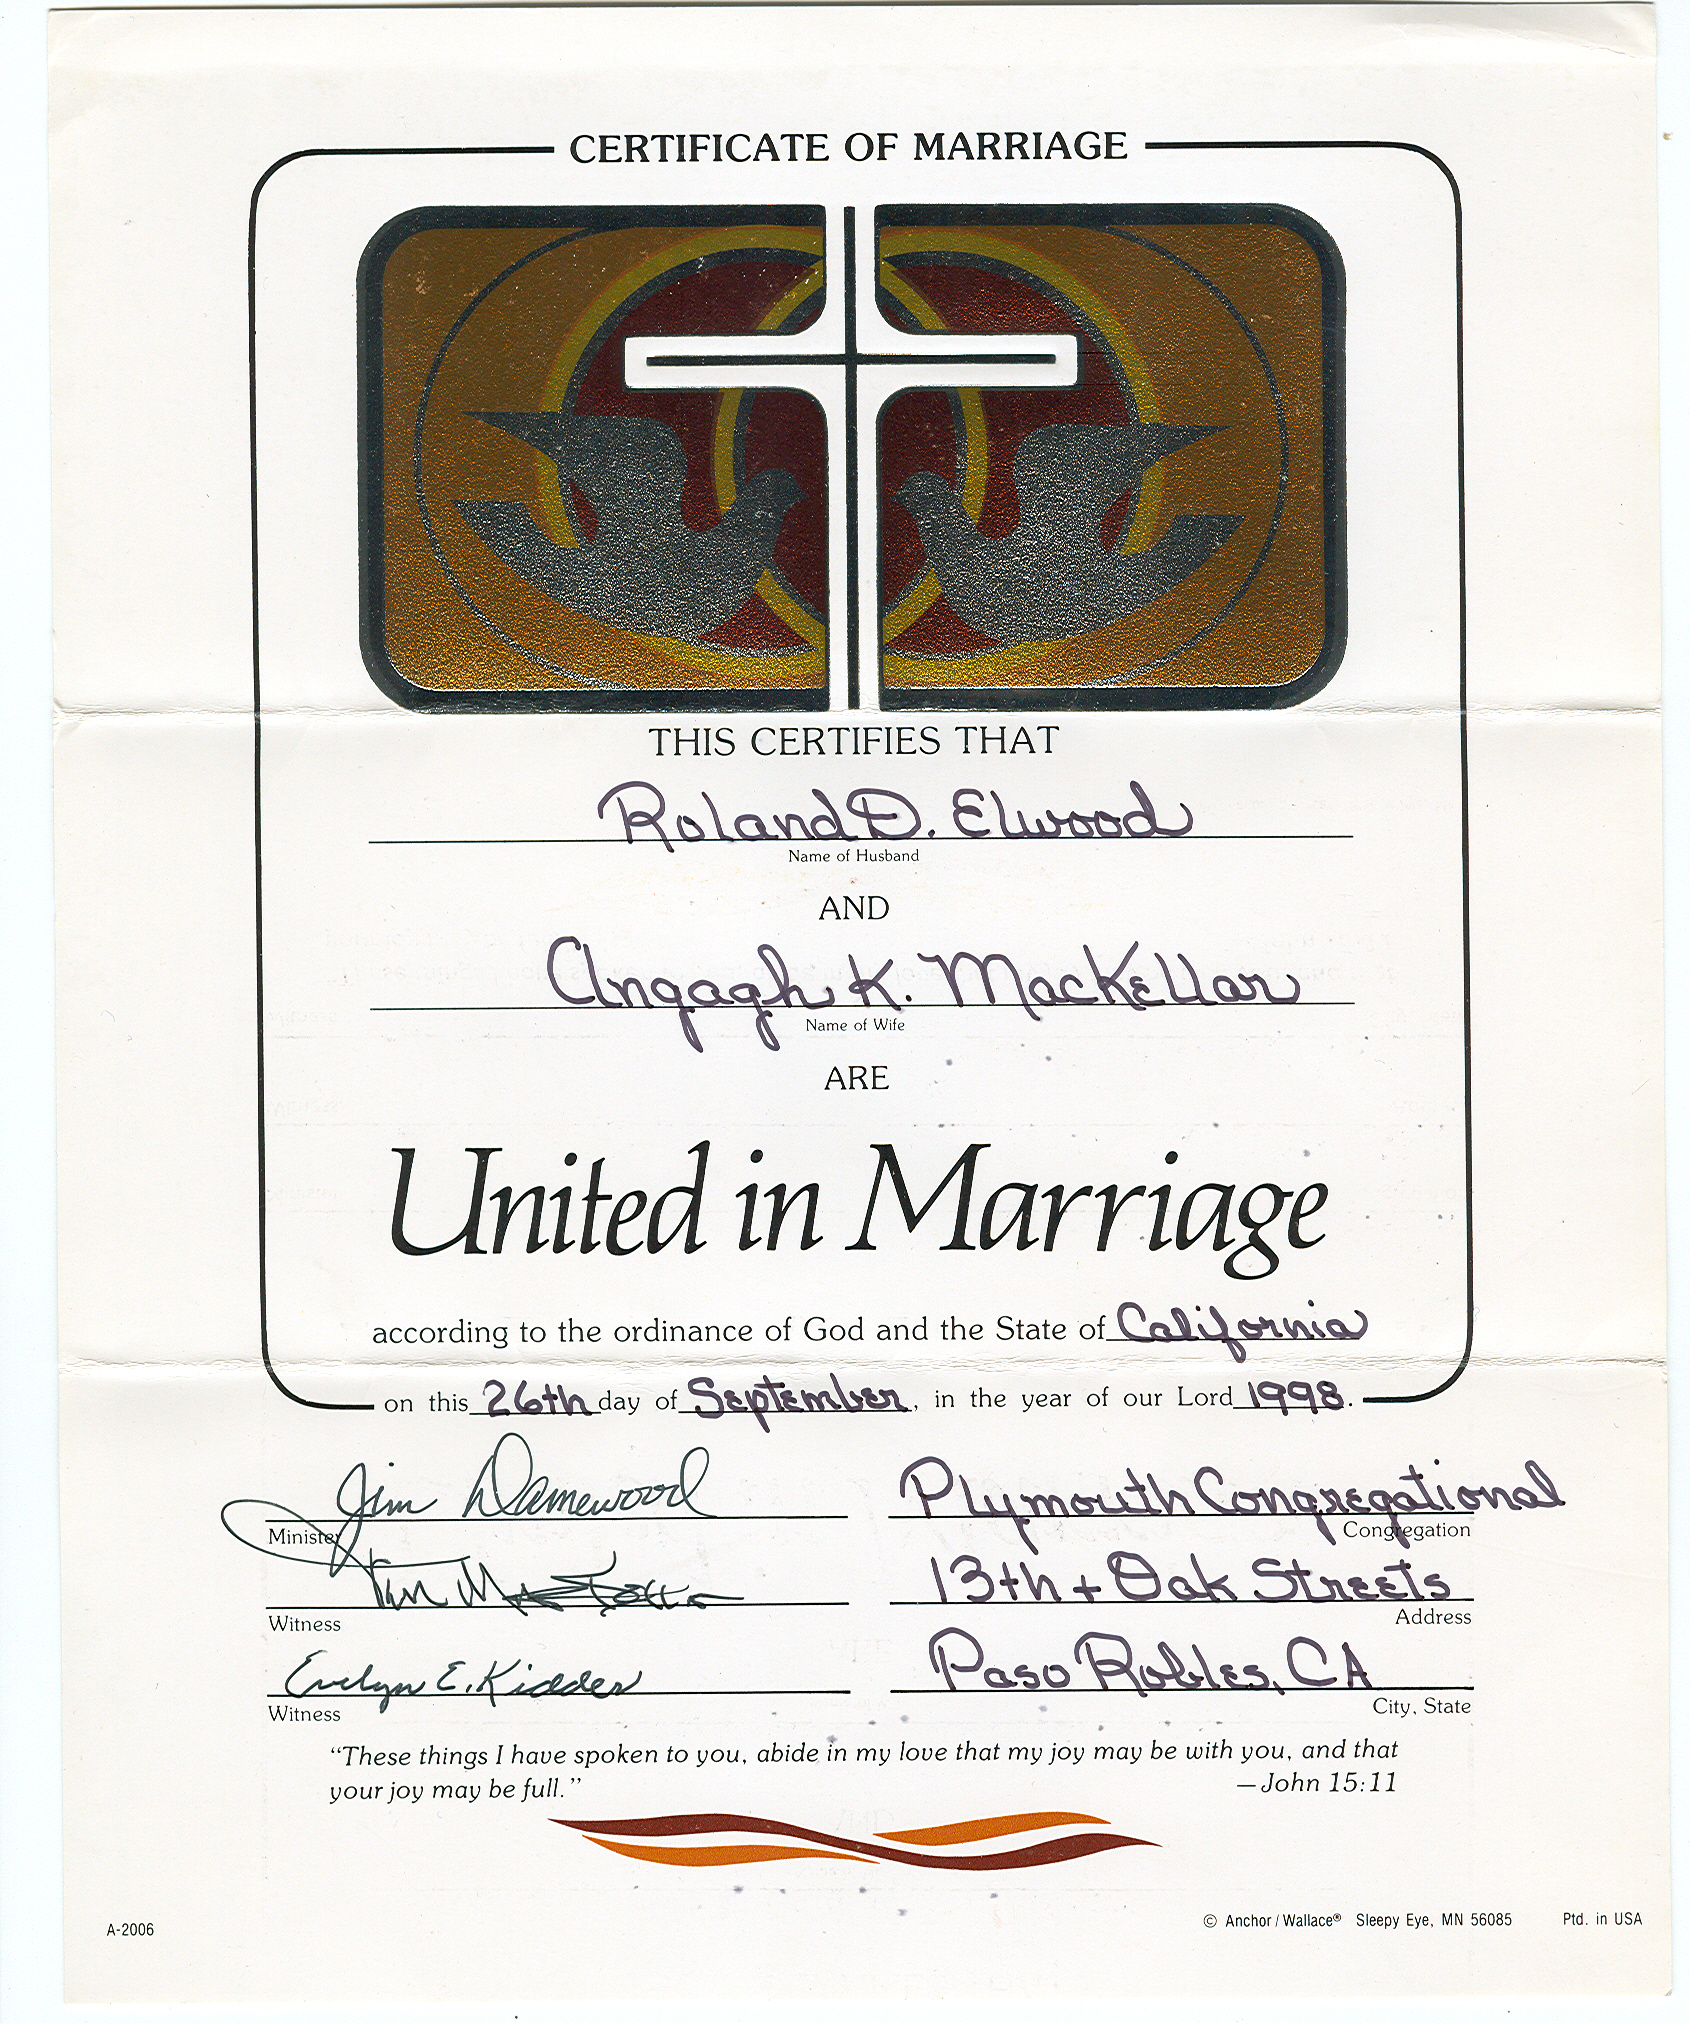 CERTIFICATE OF MARRIAGE
THIS CERTIFIES THAT
Roland D. Elwood
Name of Husband
AND
Angagh K. MacKellar
Name of Wife
ARE
United in Marriage
according to the ordinance of God and the State of California
on this 26th day of September, in the year of our Lord 1998.
Jim Damewood
Minister
Plymouth Congregational
Congregation
Witness
13th + Oak Streets
Address
Evelyn E. Kidder
Witness
Paso Robles, CA
City, State
“These things I have spoken to you, abide in my love that my joy may be with you, and that
your joy may be full.” —John 15:11
A-2006 © Anchor / Wallace® Sleepy Eye, MN 56085 Ptd. in USA